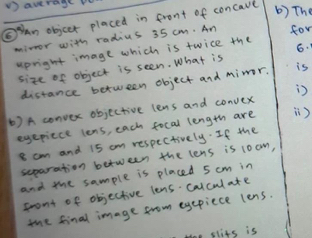 v) average
6) An objcet placed in front of concave
mirror with radius 35 cm. An
upright image which is twice the
size of object is seen. What is
distance between object and mirror.
b) A convex objective lens and convex
eyepiece lens, each focal length are
8 cm and 15 cm respectively. If the
separation between the lens is 10 cm,
and the sample is placed 5 cm in
front of objective lens. Calculate
the final image from eyepiece lens.
the slits is
b) The
for
is
i)
ii)